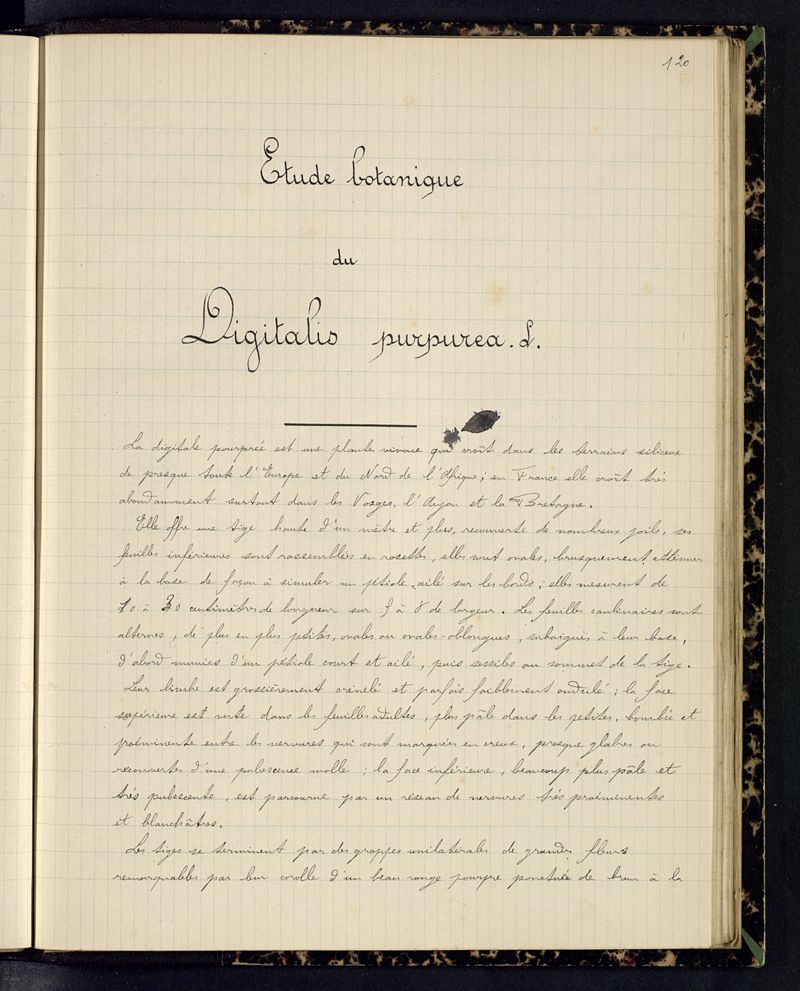 120
Etude botanique
du
Digitalis purpurea. L.
La digitale pourprée est une plante vivace qui croît dans les terrains siliceux
de presque toute l'Europe et du Nord de l'Afrique; en France elle croît très
abondamment surtout dans les Vosges, l'Anjou et la Bretagne.
Elle offre une tige haute d'un mètre et plus, recouverte de nombreux poils, ses
feuilles inférieures sont rassemblées en rosettes, elles sont ovales, brusquement atténuées
à la base de façon à simuler un pétiole ailé sur les bords; elles mesurent de
10 à 30 centimètres de longueur sur 5 à 8 de largeur. Les feuilles caulinaires sont
alternes, de plus en plus petites, ovales ou ovales-oblongues, subaiguës à leur base,
d'abord munies d'un pétiole court et ailé, puis sessiles au sommet de la tige.
Leur limbe est grossièrement crénelé et parfois faiblement ondulé; la face
supérieure est verte dans les feuilles adultes, plus pâle dans les petites, bombée et
proéminente entre les nervures qui sont marquées en creux, presque glabres ou
recouvertes d'une pubescence molle; la face inférieure, beaucoup plus pâle et
très pubescente, est parcourue par un réseau de nervures très proéminentes
et blanchâtres.
Les tiges se terminent par des grappes unilatérales de grandes fleurs
remarquables par leur corolle d'un beau rouge pourpre ponctuée de brun à la